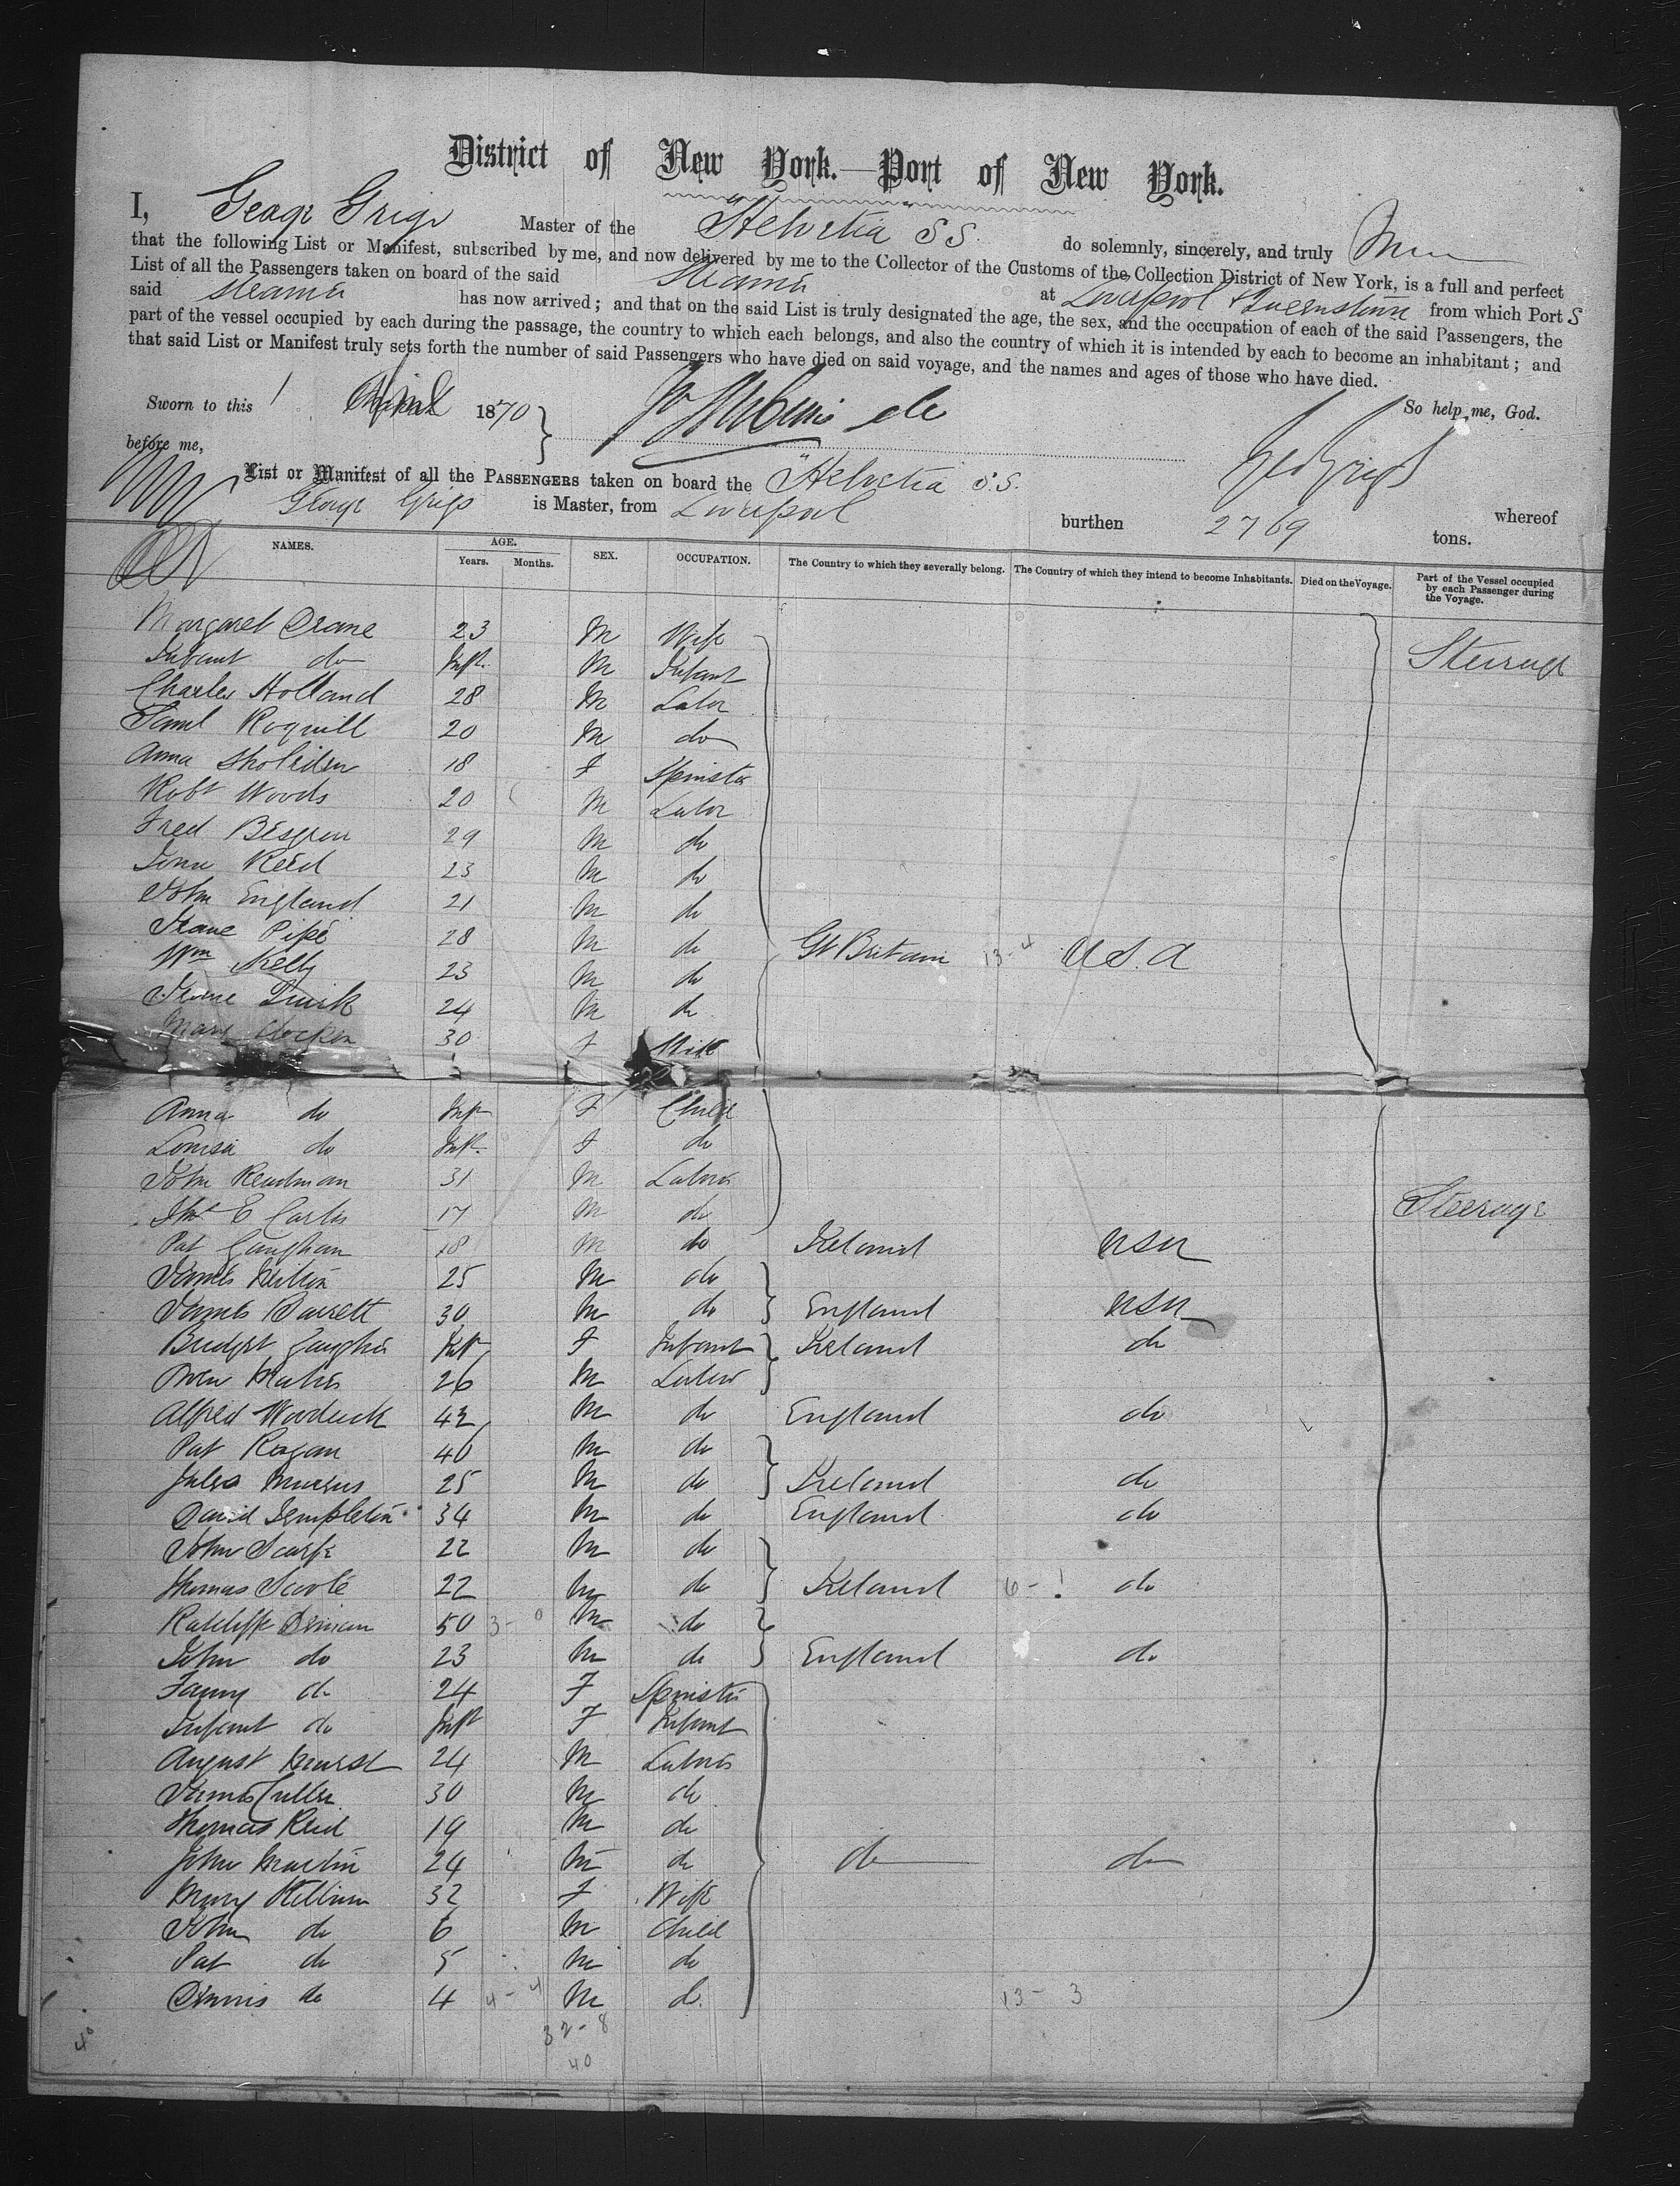 District of New York.—Port of New York.
I, George Grigs Master of the "Helvetia" SS. do solemnly, sincerely, and truly
that the following List or Manifest, subscribed by me, and now delivered by me to the Collector of the Customs of the Collection District of New York, is a full and perfect
List of all the Passengers taken on board of the said Steamer at Liverpool & Queenstown from which Port S
said steamer has now arrived; and that on the said List is truly designated the age, the sex, and the occupation of each of the said Passengers, the
part of the vessel occupied by each during the passage, the country to which each belongs, and also the country of which it is intended by each to become an inhabitant; and
that said List or Manifest truly sets forth the number of said Passengers who have died on said voyage, and the names and ages of those who have died.
So help me, God.
Sworn to this 1 April 1870
before me, Geo Grigs
List or Manifest of all the PASSENGERS taken on board the "Helvetia S.S. whereof
George Grigs is Master, from Liverpool burthen 2769 tons.
NAMES. AGE. Years. Months. SEX. OCCUPATION. The Country to which they severally belong. The Country of which they intend to become Inhabitants. Died on the Voyage. Part of the Vessel occupied by each Passenger during the Voyage.
Margaret Crane 23 M Wife Steerage
Infant do Inft. M Infant
Charles Holland 28 M Labor
Saml Roquill 20 M do
Anna 18 F Spinster
Robt Woods 20 M Labor
Fred 29 M do
Reed 23 M do
John England 21 M do
Pipe 28 M do Gt Britain 13-4 U.S.A
Wm Kelly 23 M do
24 M do
Mary 30 F Wife
Anna do Inft F Child
Louisa do Inft. F do
John Readman 31 M Labors
E Carter 17 M do Steerage
Pat Gaughan 18 M do Ireland USA
James 25 M do
James Barrett 30 M do England USA
Bridget Inft F Infant Ireland do
26 M Labor
Alfred 42 M do England do
Pat Ragan 40 M do
Jules 25 M do Ireland do
David Templeton 34 M do England do
John Scarfe 22 M do
Thomas 22 M do Ireland 6-1 do
Ratcliffe 50 3-0 M do
John do 23 M do England do
Fanny do 24 F Spinster
Infant do Inft F Infant
August 24 M Labors
James Cullen 30 M do
Thomas Reid 19 M do
John Martin 24 M do do do
Mary 32 F Wife
John do 6 M Child
Pat do 5 M do
Dinnis do 4 4-4 M do 13-3
32-8
40
40